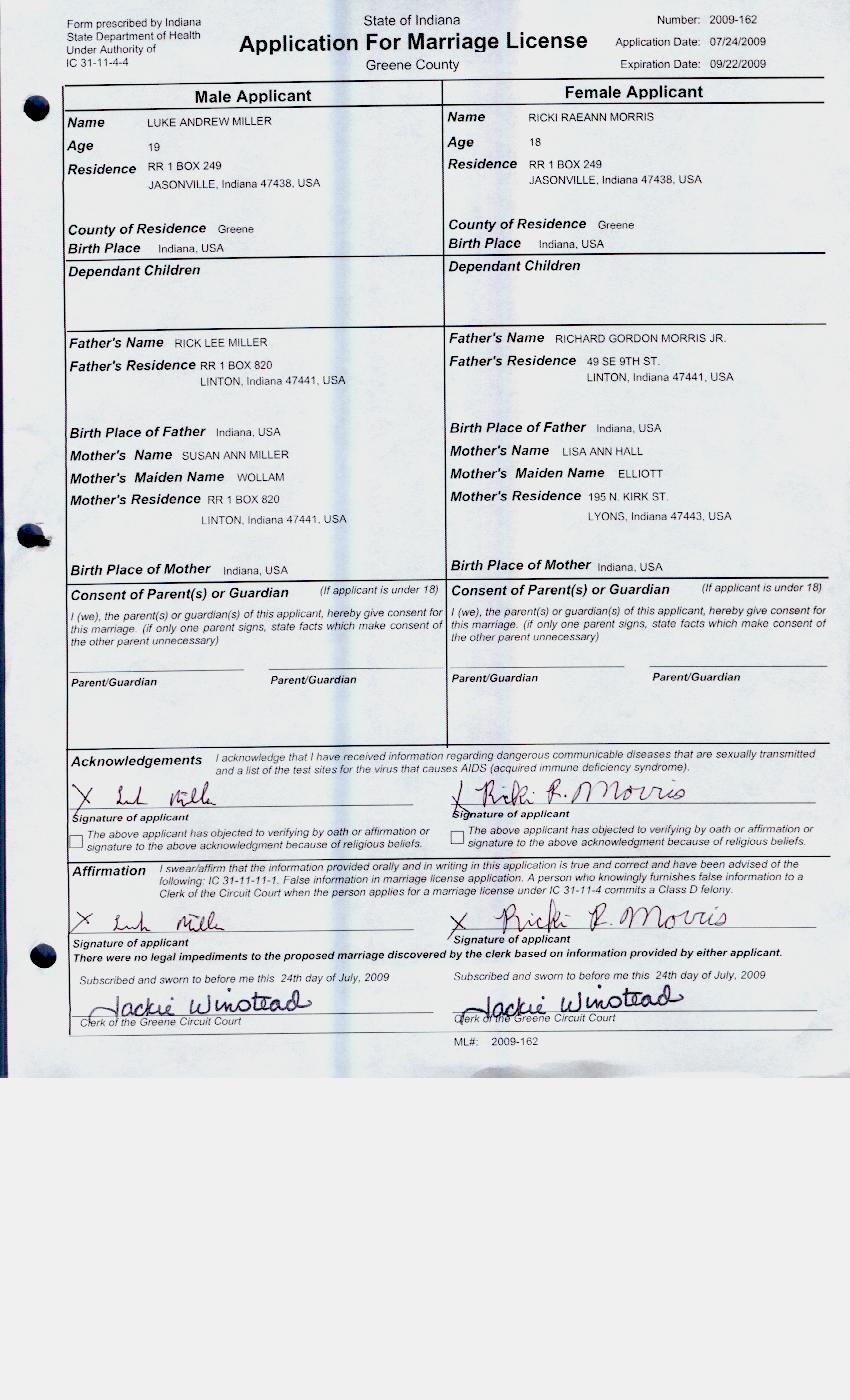 Form prescribed by Indiana
State Department of Health
Under Authority of
IC 31-11-4-4
State of Indiana
Application For Marriage License
Greene County
Number: 2009-162
Application Date: 07/24/2009
Expiration Date: 09/22/2009
Male Applicant
Name LUKE ANDREW MILLER
Age 19
Residence RR 1 BOX 249
JASONVILLE, Indiana 47438, USA
County of Residence Greene
Birth Place Indiana, USA
Dependant Children
Father's Name RICK LEE MILLER
Father's Residence RR 1 BOX 820
LINTON, Indiana 47441, USA
Birth Place of Father Indiana, USA
Mother's Name SUSAN ANN MILLER
Mother's Maiden Name WOLLAM
Mother's Residence RR 1 BOX 820
LINTON, Indiana 47441, USA
Birth Place of Mother Indiana, USA
Consent of Parent(s) or Guardian (If applicant is under 18)
I (we), the parent(s) or guardian(s) of this applicant, hereby give consent for
this marriage. (if only one parent signs, state facts which make consent of
the other parent unnecessary)
Parent/Guardian Parent/Guardian
Female Applicant
Name RICKI RAEANN MORRIS
Age 18
Residence RR 1 BOX 249
JASONVILLE, Indiana 47438, USA
County of Residence Greene
Birth Place Indiana, USA
Dependant Children
Father's Name RICHARD GORDON MORRIS JR.
Father's Residence 49 SE 9TH ST.
LINTON, Indiana 47441, USA
Birth Place of Father Indiana, USA
Mother's Name LISA ANN HALL
Mother's Maiden Name ELLIOTT
Mother's Residence 195 N. KIRK ST.
LYONS, Indiana 47443, USA
Birth Place of Mother Indiana, USA
Consent of Parent(s) or Guardian (If applicant is under 18)
I (we), the parent(s) or guardian(s) of this applicant, hereby give consent for
this marriage. (if only one parent signs, state facts which make consent of
the other parent unnecessary)
Parent/Guardian Parent/Guardian
Acknowledgements I acknowledge that I have received information regarding dangerous communicable diseases that are sexually transmitted
and a list of the test sites for the virus that causes AIDS (acquired immune deficiency syndrome).
X Luk Miller
Signature of applicant
The above applicant has objected to verifying by oath or affirmation or
signature to the above acknowledgment because of religious beliefs.
X Ricki R. Morris
Signature of applicant
The above applicant has objected to verifying by oath or affirmation or
signature to the above acknowledgment because of religious beliefs.
Affirmation I swear/affirm that the information provided orally and in writing in this application is true and correct and have been advised of the
following: IC 31-11-11-1. False information in marriage license application. A person who knowingly furnishes false information to a
Clerk of the Circuit Court when the person applies for a marriage license under IC 31-11-4 commits a Class D felony.
X Luk Miller
Signature of applicant
X Ricki R. Morris
Signature of applicant
There were no legal impediments to the proposed marriage discovered by the clerk based on information provided by either applicant.
Subscribed and sworn to before me this 24th day of July, 2009
Jackie Winstead
Clerk of the Greene Circuit Court
Subscribed and sworn to before me this 24th day of July, 2009
Jackie Winstead
Clerk of the Greene Circuit Court
ML#: 2009-162